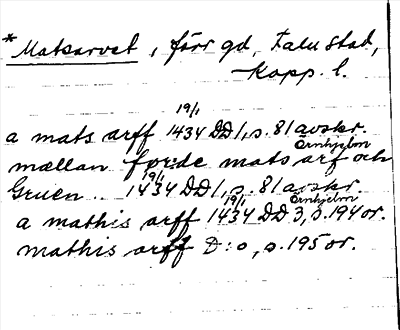 * Matsarvet, förr gd, Falu stad,
Kopp. l.
19/1
a mats arff 1434 DD 1, s. 81 avskr.
Örnhjelm
mællan forde mats arf och
19/1
Gruen .. 1434 DD 1, s. 81 avskr.
19/1 Örnhjelm
a mathis arff 1434 DD 3, s. 194 or.
mathis arff D:o, s. 195 or.